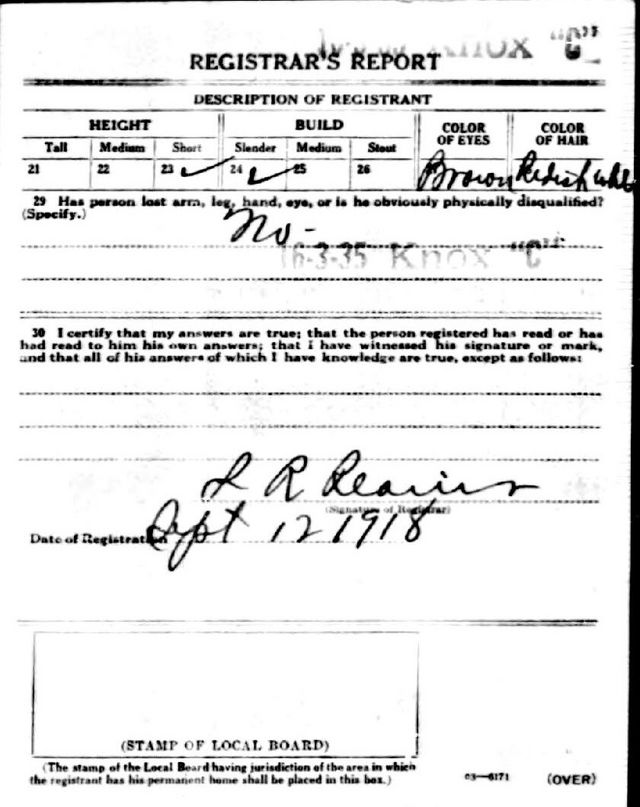 Knox "C"
REGISTRAR'S REPORT
DESCRIPTION OF REGISTRANT
HEIGHT BUILD COLOR OF EYES COLOR OF HAIR
Tall Medium Short Slender Medium Stout
21 22 23 ✓ 24 ✓ 25 26 Brown Redish
29 Has person lost arm, leg, hand, eye, or is he obviously physically disqualified?
(Specify.)
No -
16-3-35 Knox "C"
30 I certify that my answers are true; that the person registered has read or has
had read to him his own answers; that I have witnessed his signature or mark,
and that all of his answers of which I have knowledge are true, except as follows:
R
(Signature of Registrar)
Date of Registration Sept 12 1918
(STAMP OF LOCAL BOARD)
(The stamp of the Local Board having jurisdiction of the area in which
the registrant has his permanent home shall be placed in this box.)
03—6171 (OVER)